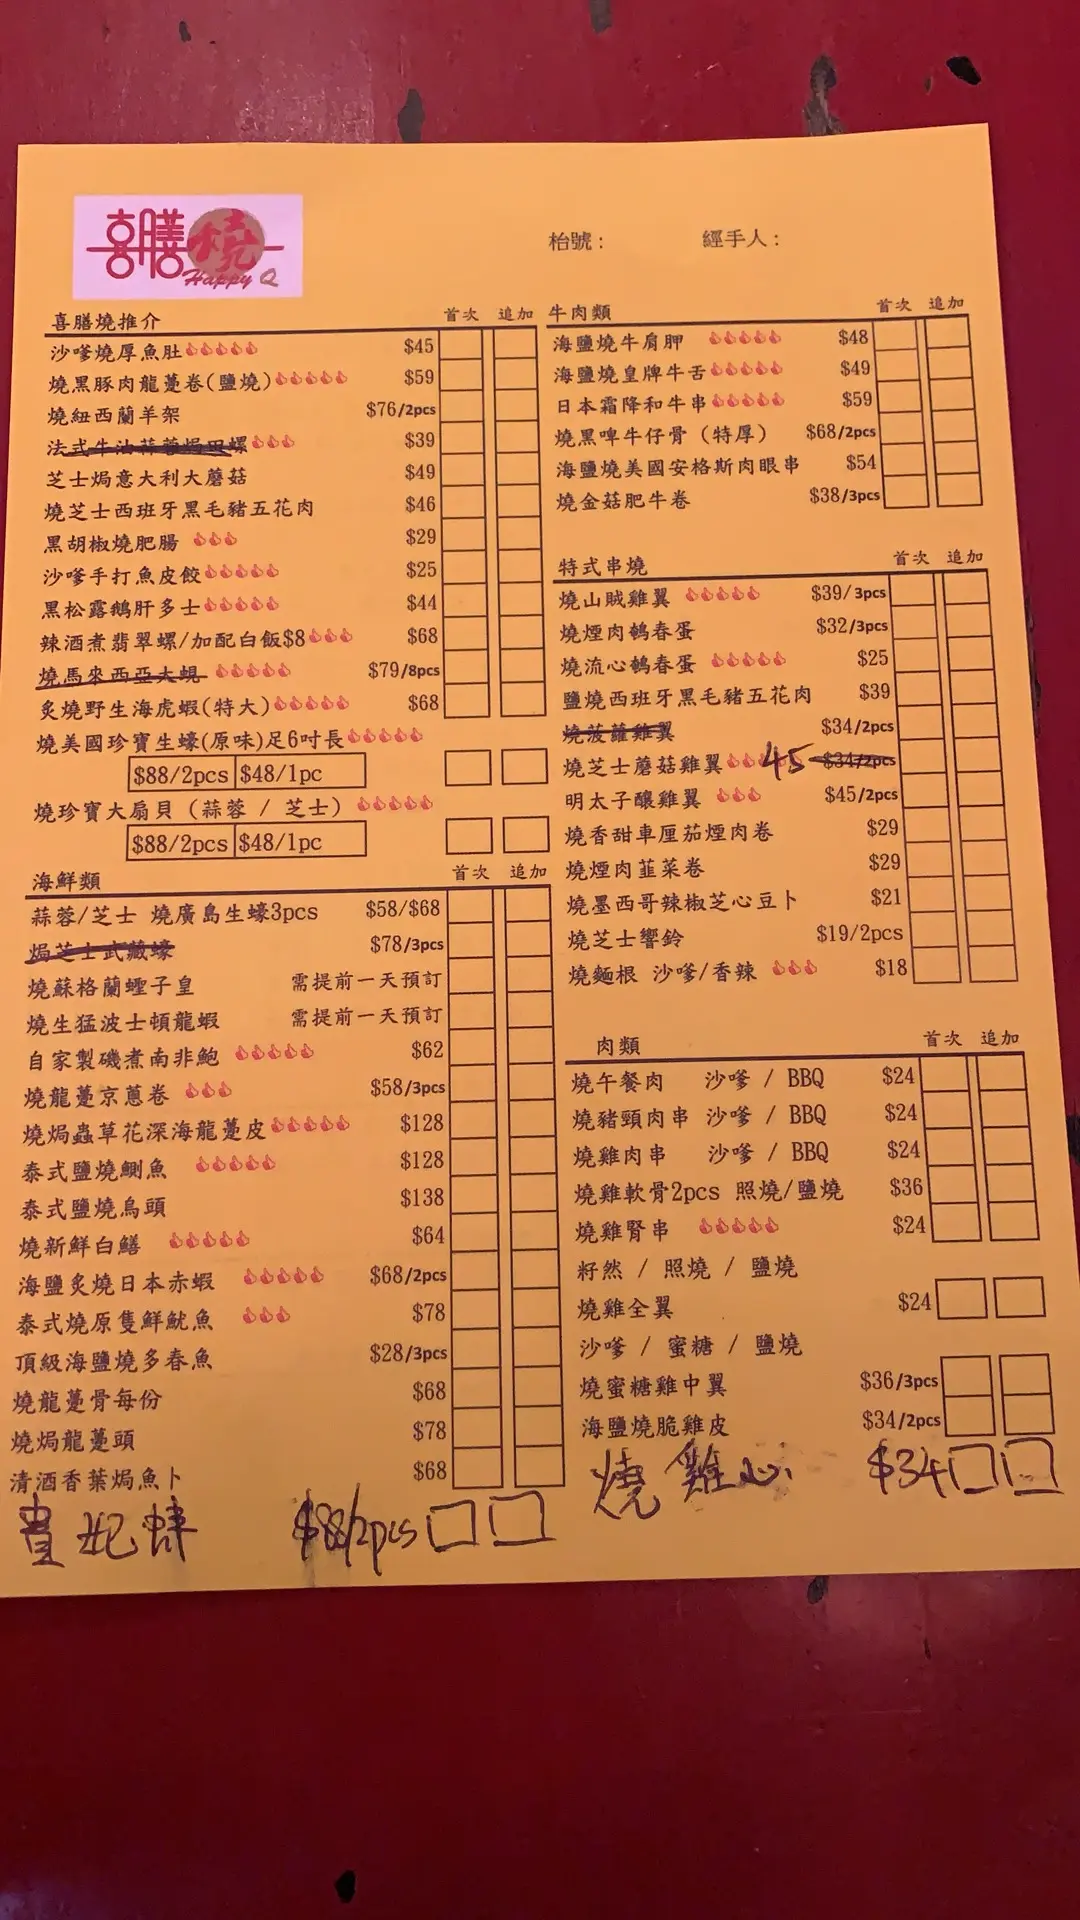 喜膳燒
Happy Q
枱號： 經手人：
喜膳燒推介 首次 追加
沙嗲燒厚魚肚 $45
燒黑豚肉龍躉卷(鹽燒) $59
燒紐西蘭羊架 $76/2pcs
法式牛油蒜蓉焗田螺 $39
芝士焗意大利大蘑菇 $49
燒芝士西班牙黑毛豬五花肉 $46
黑胡椒燒肥腸 $29
沙嗲手打魚皮餃 $25
黑松露鵝肝多士 $44
辣酒煮翡翠螺/加配白飯$8 $68
燒馬來西亞大蜆 $79/8pcs
炙燒野生海虎蝦(特大) $68
燒美國珍寶生蠔(原味)足6吋長
$88/2pcs $48/1pc
燒珍寶大扇貝 (蒜蓉 / 芝士)
$88/2pcs $48/1pc
海鮮類 首次 追加
蒜蓉/芝士 燒廣島生蠔3pcs $58/$68
焗芝士武藏蠔 $78/3pcs
燒蘇格蘭蟶子皇 需提前一天預訂
燒生猛波士頓龍蝦 需提前一天預訂
自家製磯煮南非鮑 $62
燒龍躉京蔥卷 $58/3pcs
燒焗蟲草花深海龍躉皮 $128
泰式鹽燒鰂魚 $128
泰式鹽燒烏頭 $138
燒新鮮白鱔 $64
海鹽炙燒日本赤蝦 $68/2pcs
泰式燒原隻鮮魷魚 $78
頂級海鹽燒多春魚 $28/3pcs
燒龍躉骨每份 $68
燒焗龍躉頭 $78
清酒香葉焗魚卜 $68
貴妃蚌 $88/2pcs
牛肉類 首次 追加
海鹽燒牛肩胛 $48
海鹽燒皇牌牛舌 $49
日本霜降和牛串 $59
燒黑啤牛仔骨 (特厚) $68/2pcs
海鹽燒美國安格斯肉眼串 $54
燒金菇肥牛卷 $38/3pcs
特式串燒 首次 追加
燒山賊雞翼 $39/3pcs
燒煙肉鵪春蛋 $32/3pcs
燒流心鵪春蛋 $25
鹽燒西班牙黑毛豬五花肉 $39
燒菠蘿雞翼 $34/2pcs
燒芝士蘑菇雞翼 45 $34/2pcs
明太子釀雞翼 $45/2pcs
燒香甜車厘茄煙肉卷 $29
燒煙肉韮菜卷 $29
燒墨西哥辣椒芝心豆卜 $21
燒芝士響鈴 $19/2pcs
燒麵根 沙嗲/香辣 $18
肉類 首次 追加
燒午餐肉 沙嗲 / BBQ $24
燒豬頸肉串 沙嗲 / BBQ $24
燒雞肉串 沙嗲 / BBQ $24
燒雞軟骨2pcs 照燒/鹽燒 $36
燒雞腎串 $24
籽然 / 照燒 / 鹽燒
燒雞全翼 $24
沙嗲 / 蜜糖 / 鹽燒
燒蜜糖雞中翼 $36/3pcs
海鹽燒脆雞皮 $34/2pcs
燒雞心 $34